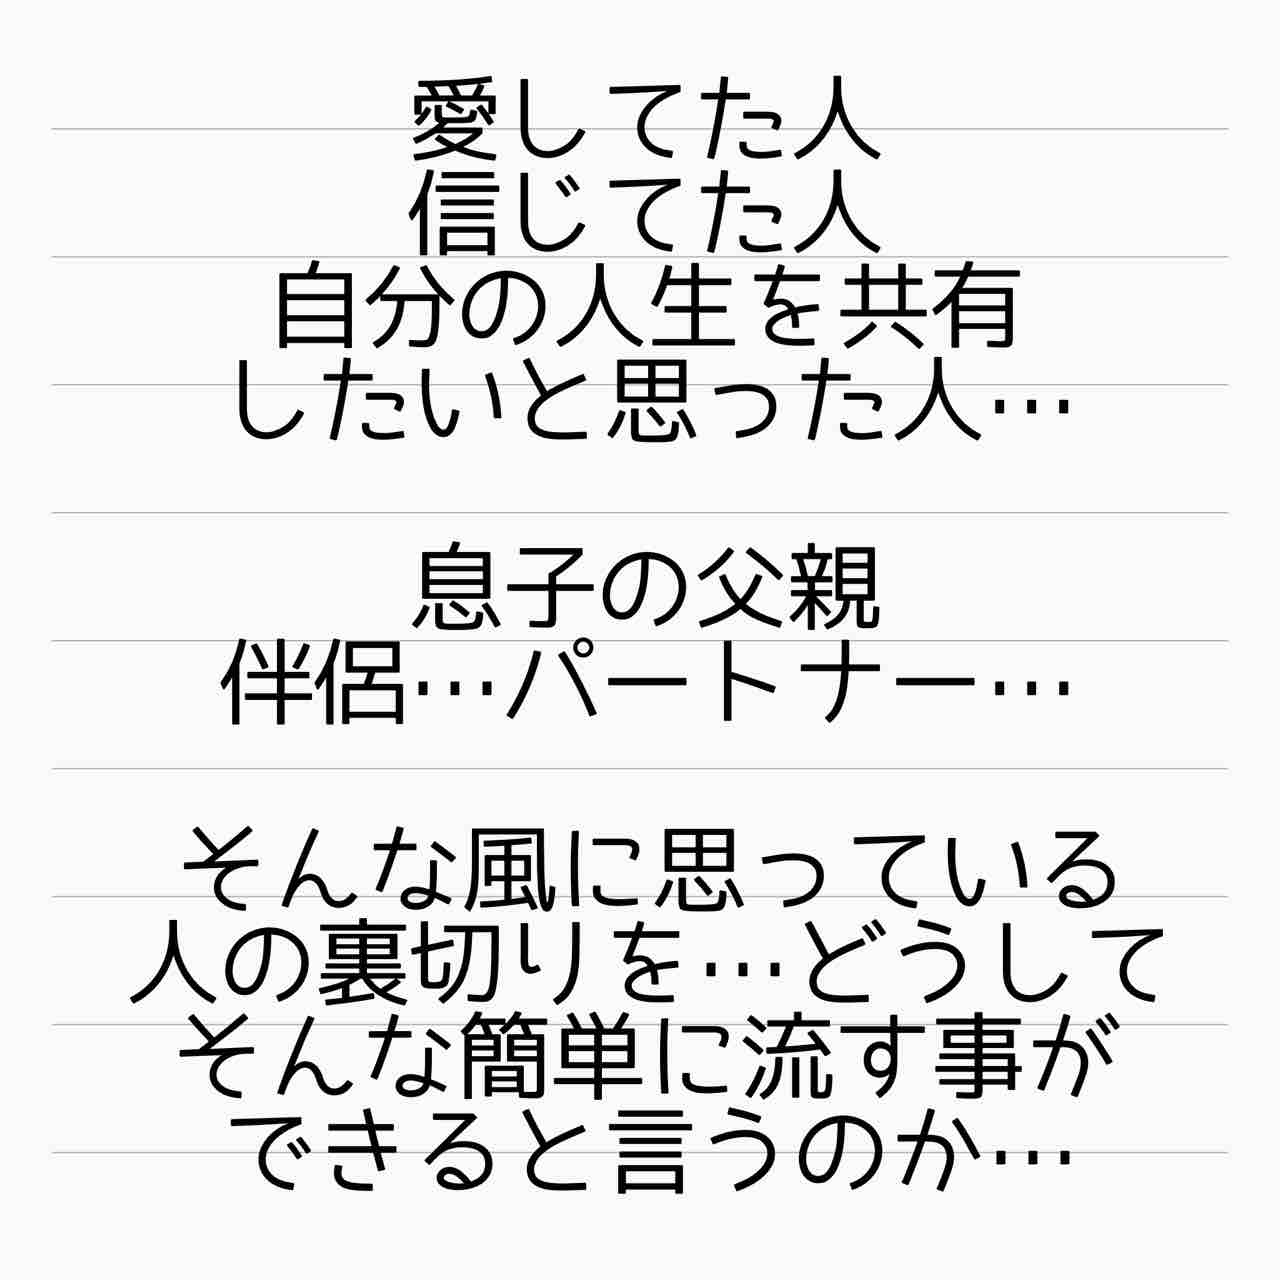 愛してた人
信じてた人
自分の人生を共有
したいと思った人…
息子の父親
伴侶…パートナー…
そんな風に思っている
人の裏切りを…どうして
そんな簡単に流す事が
できると言うのか…